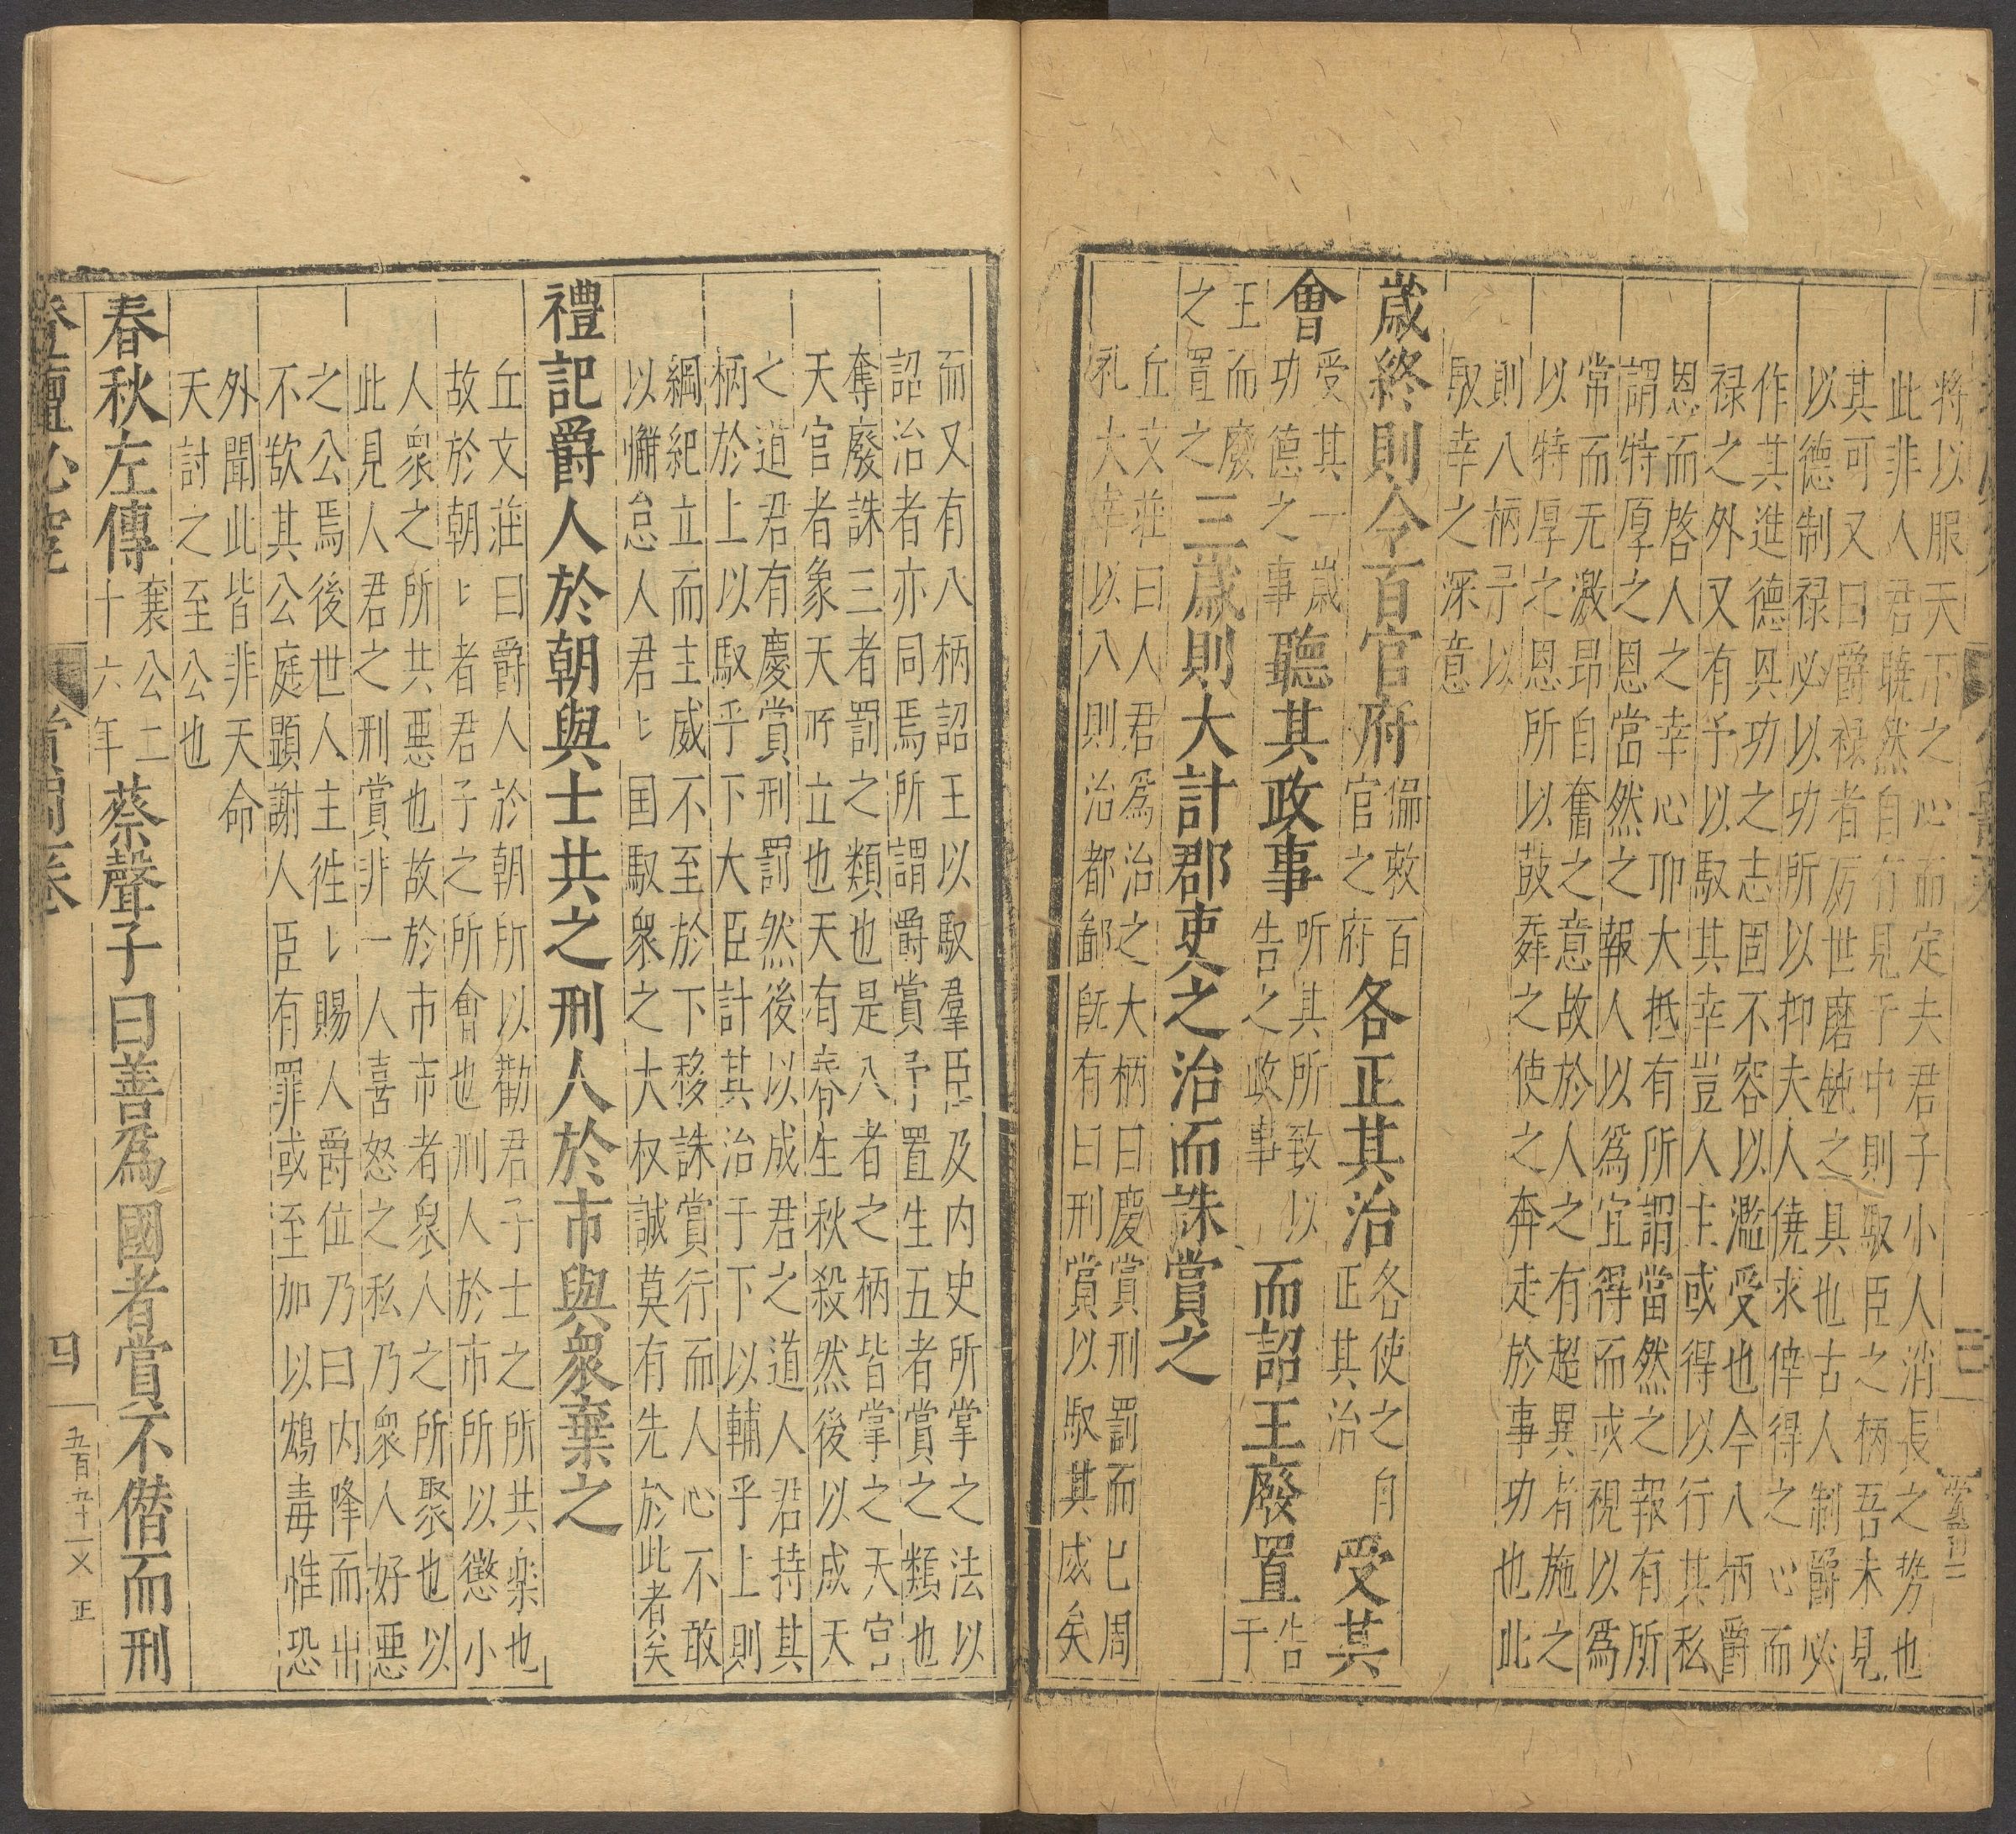 將以服天下之心而定夫君子小人消長之勢也
此非人君曉然自有見于中則馭臣之柄吾未見
其可又曰爵祿者厉世磨鈍之具也古人制爵必
以德制禄必以功所以抑夫人僥求倖得之心而
作其進德興功之志固不容以濫受也今八柄爵
禄之外又有予以馭其幸豈人主或得以行其私
恩而啓人之幸心耶大抵有所謂當然之報有所
謂特厚之恩當然之報人以爲宜得而或視以爲
常而无激昂自奮之意故於人之有超異者施之
以特厚之恩所以鼓舜之使之奔走於事功也此
則八柄予以
馭幸之深意
歲終則令百官府
偏敕百
官之府
各正其治
各使之自
正其治
受其
會
受其一歲
功德之事
聽其政事
听其所致以
告之政事
而詔王廢置
告
于
王而廢
之置之
三歲則大計郡吏之治而誅賞之
丘文莊曰人君爲治之大柄曰慶賞刑罰而已周
礼大宰以八則治都鄙既有曰刑賞以馭其威矣
而又有八柄詔王以馭羣臣及内史所掌之法以
詔治者亦同焉所謂爵賞予置生五者賞之類也
奪廢誅三者罰之類也是八者之柄皆掌之天官
天官者象天所立也天有春生秋殺然後以成天
之道君有慶賞刑罰然後以成君之道人君持其
柄於上以馭乎下大臣計其治于下以輔乎上則
綱紀立而主威不至於下移誅賞行而人心不敢
以懈怠人君匕囯馭衆之大权誠莫有先於此者矣
禮記爵人於朝與士共之刑人於市與衆棄之
丘文莊曰爵人於朝所以勸君子士之所共楽也
故於朝匕者君子之所會也刑人於市所以懲小
人衆之所共惡也故於市市者衆人之所聚也以
此見人君之刑賞非一人喜怒之私乃衆人好惡
之公焉後世人主徃匕賜人爵位乃曰内降而出
不欲其公庭顯謝人臣有罪或至加以鴆毒惟恐
外聞此皆非天命
天討之至公也
春秋左傳
襄公二
十六年
蔡聲子曰善爲國者賞不僣而刑
四
五百九十一乂 正